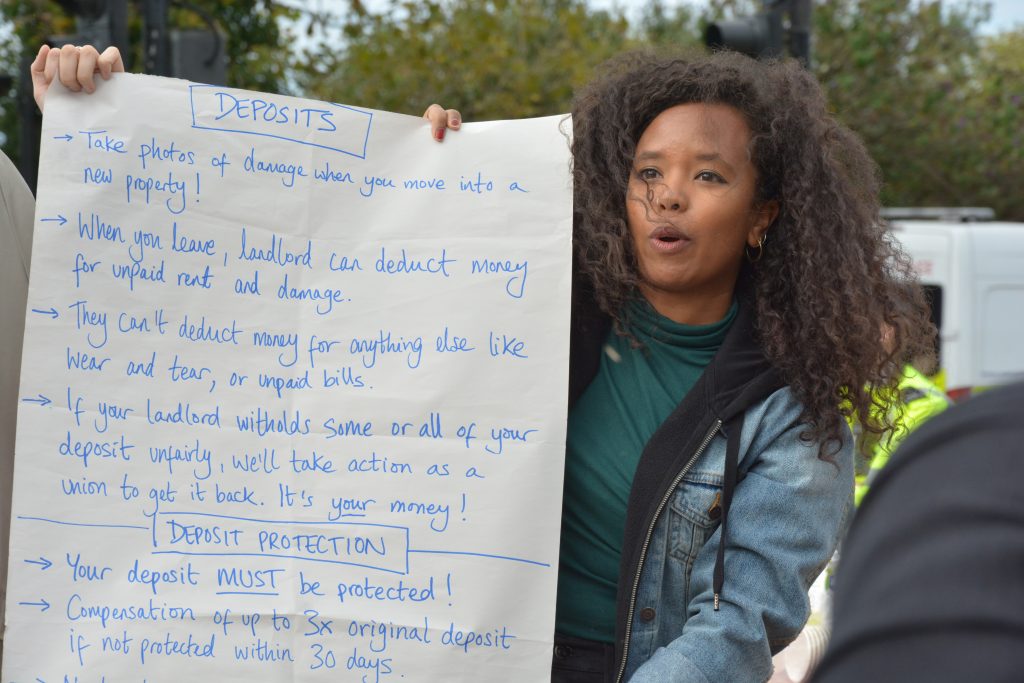 DEPOSITS
→ Take photos of damage when you move into a
new property!
→ When you leave, landlord can deduct money
for unpaid rent and damage.
→ They can't deduct money for anything else like
wear and tear, or unpaid bills.
→ If your landlord witholds some or all of your
deposit unfairly, we'll take action as a
union to get it back. It's your money!
DEPOSIT PROTECTION
→ Your deposit MUST be protected!
→ Compensation of up to 3x original deposit
if not protected within 30 days.